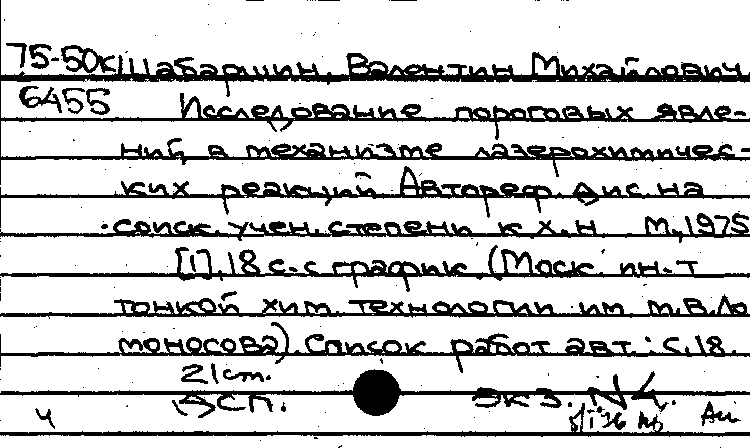 75-50к Шабаршин, Валентин Михайлович
6455 Исследование пороговых явле-
ний в механизме лазерохимичес-
ких реакций Автореф. дис. на
соиск. учен. степени к.х.н М., 1975
[1], 18 с. с график. (Моск. ин-т
тонкой хим. технологии им. М.В. Ло
моносова). Список работ авт.: с. 18.
21 ст.
АСП. Экз. №4.
ч